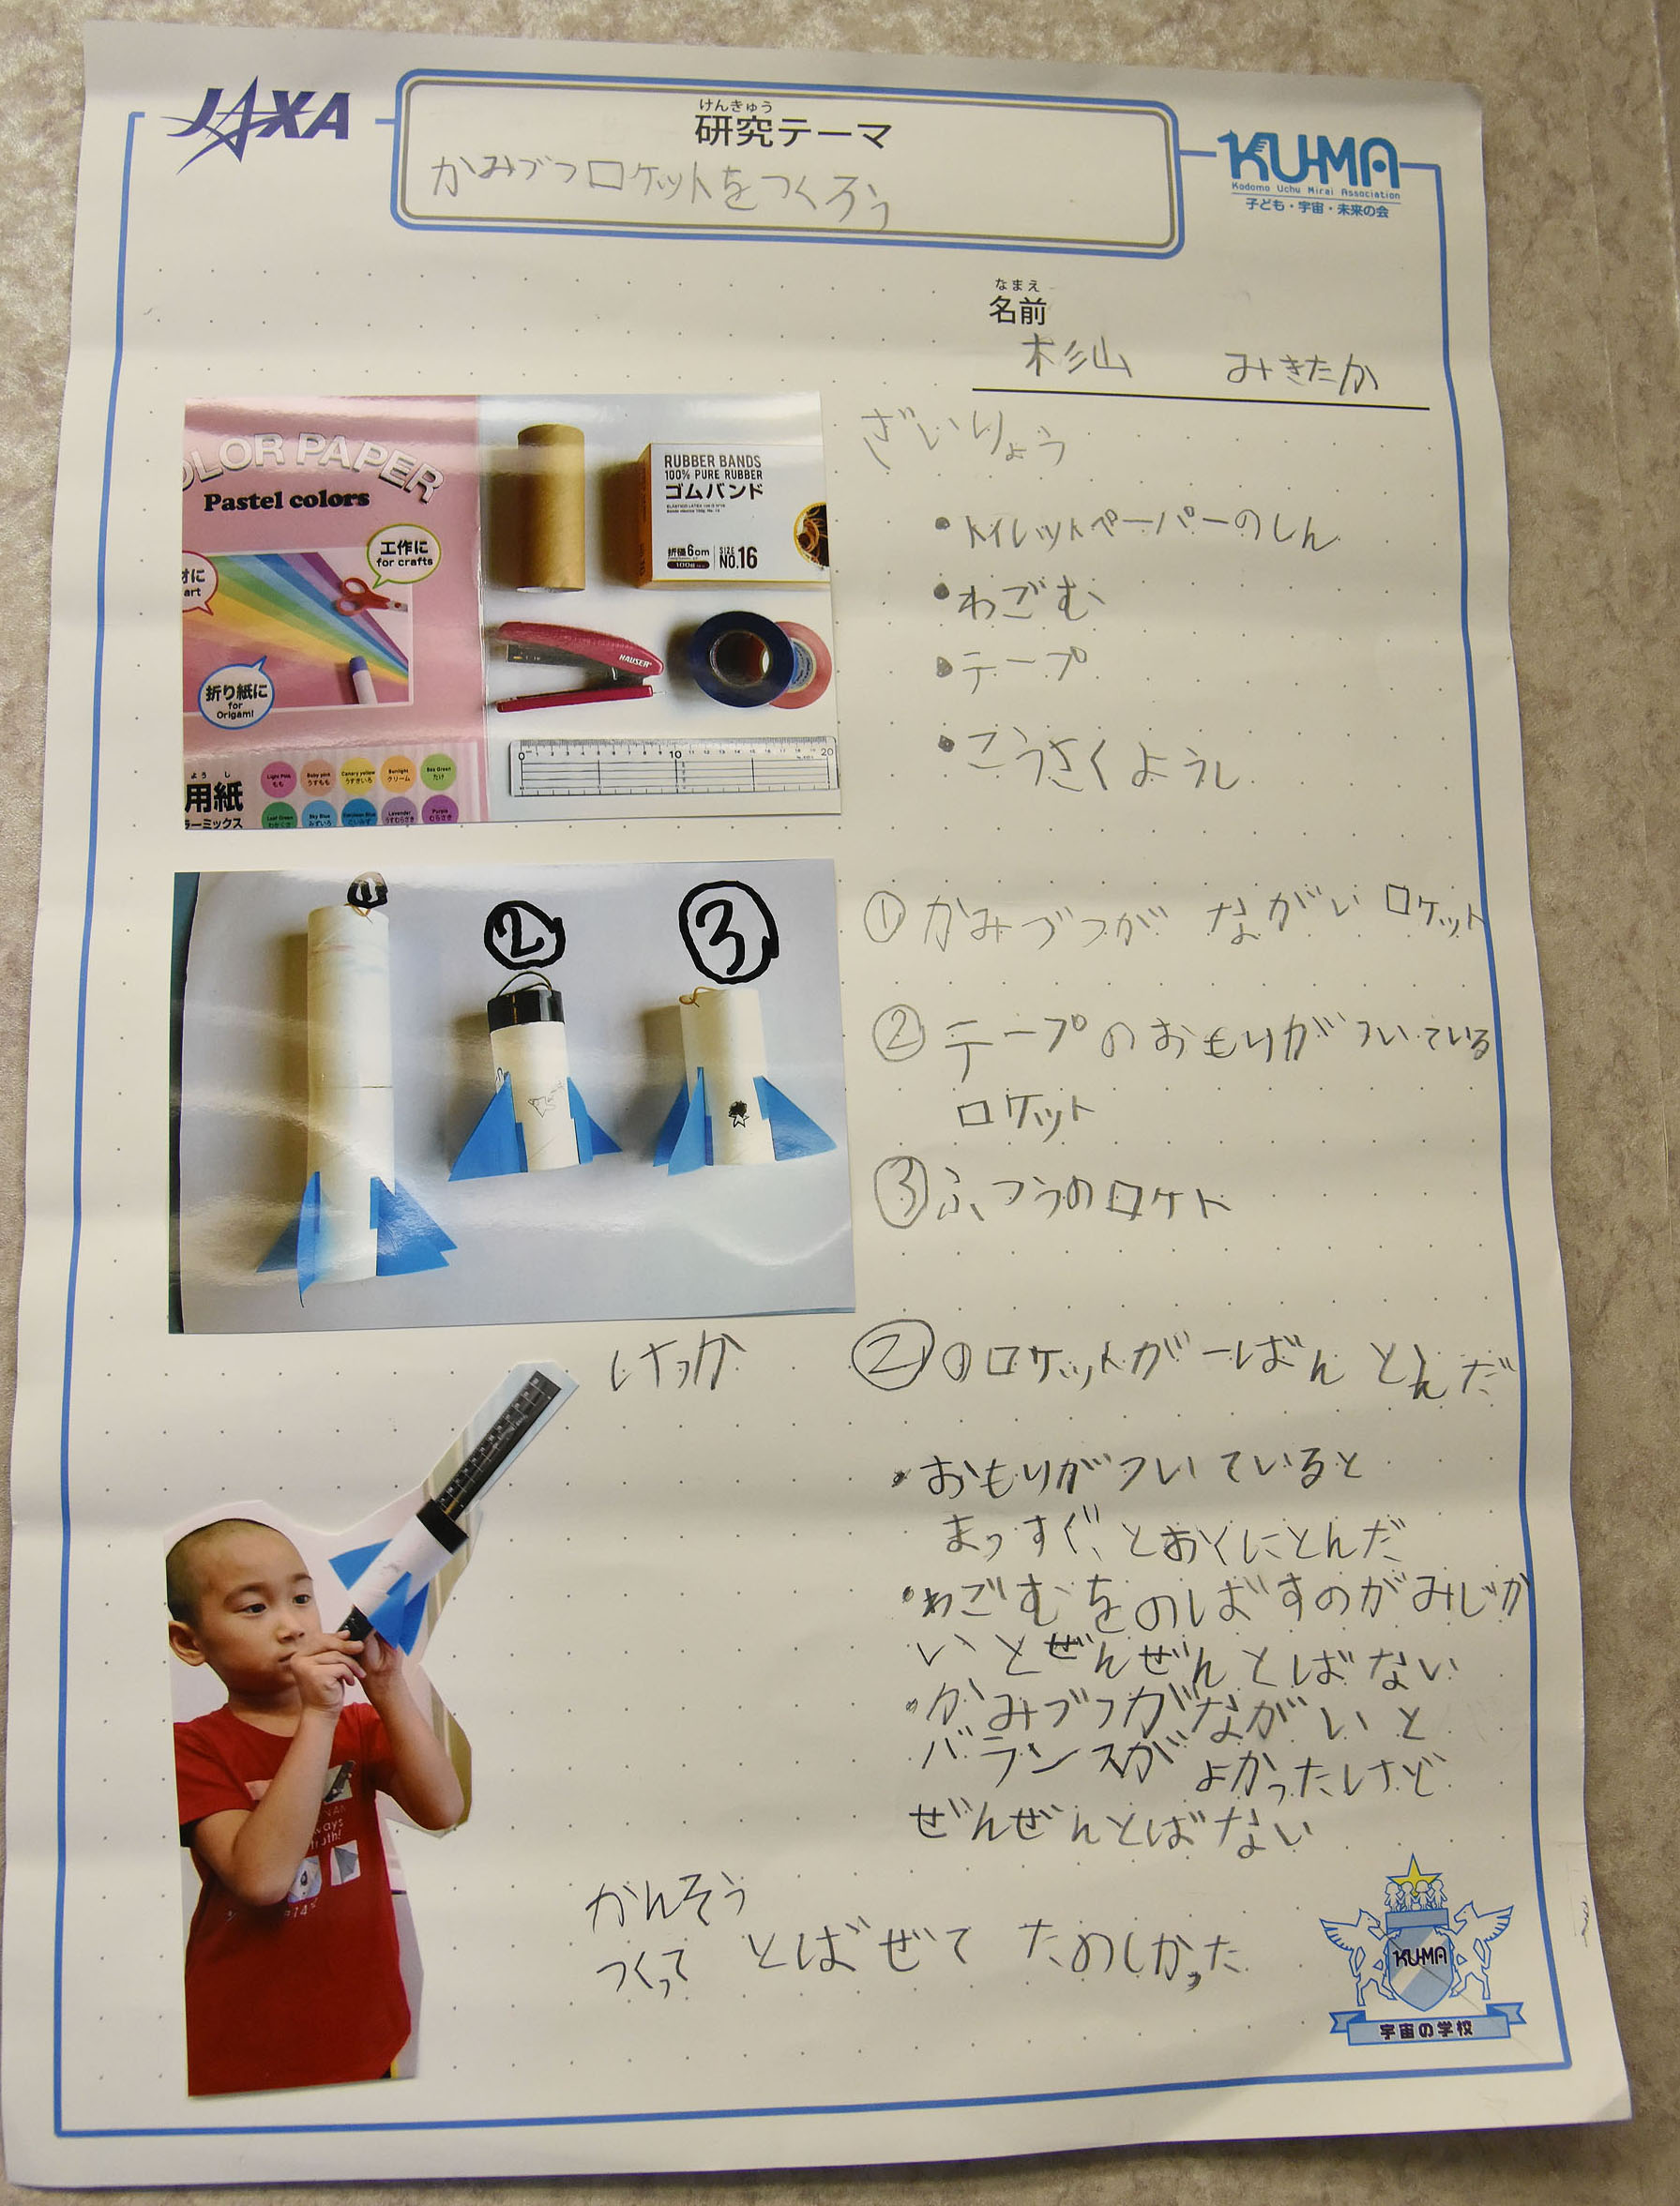 JAXA
けんきゅう
研究テーマ
かみづつロケットをつくろう
KU-MA
Kodomo Uchu Mirai Association
子ども・宇宙・未来の会
なまえ
名前
杉山 みきたか
OLOR PAPER
Pastel colors
工作に
for crafts
art
折り紙に
for
Origami
ようし
用紙
ラーミックス
Light Pink
もも
Baby pink
うすもも
Canary yellow
うすきいろ
Sunlight
クリーム
たけ
Leaf Green
わかくさ
Sky Blue
みずいろ
Lavender
うすむらさき
Purple
むらさき
RUBBER BANDS
100% PURE RUBBER
ゴムバンド
折径6cm
100g
SIZE
NO.16
HAUSER
0 10 20
ざいりょう
・トイレットペーパーのしん
・わごむ
・テープ
・こうさくようし
①
②
③
①かみづつがながいロケット
②テープのおもりがついている
ロケット
③ふつうのロケト
けっか
②のロケットが一ばんとんだ
・おもりがついていると
まっすぐ、とおくにとんだ
・わごむをのばすのがみじか
いとぜんぜんとばない
・かみづつがながいと
バランスがよかったけど
ぜんぜんとばない
かんそう
つくって とばぜて たのしかった
KU-MA
宇宙の学校